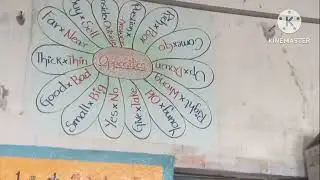 Opposites
Rich x Poor
Come x Go
Up x Down
Right x Wrong
Young x Old
Give x Take
Yes x No
Small x Big
Good x Bad
Thick x Thin
Far x Near
Buy x Sell
Question x Answer
KINEMASTER